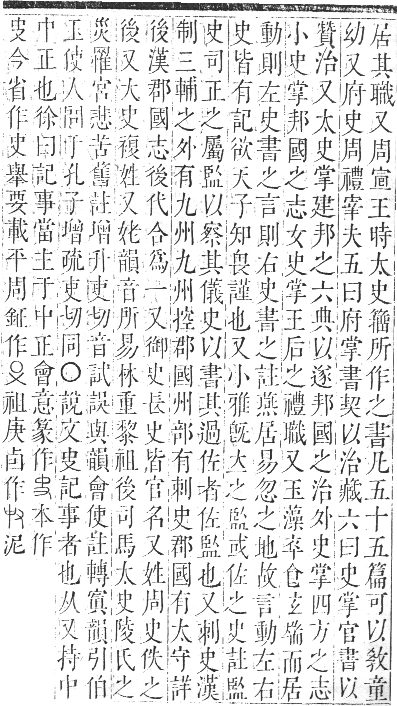 居其職又周宣王時太史籀所作之書凡五十五篇可以敎童
幼又府史周禮宰夫五曰府掌書契以治藏六曰史掌官書以
贊治又太史掌建邦之六典以逐邦國之治外史掌四方之志
小史掌邦國之志女史掌王后之禮職又玉藻卒食玄端而居
動則左史書之言則右史書之註燕居易忽之地故言動左右
史皆有記欲天子知畏謹也又小雅旣大之監或佐之史註監
史司正之屬監以察其儀史以書其過佐者佐監也又刺史漢
制三輔之外有九州九州控郡國州部有刺史郡國有太守詳
後漢郡國志後代合爲一又御史長史皆官名又姓周史佚之
後又大史複姓又姥韻音所易林重黎祖後司馬太史陵氏之
災罹宮悲苦舊註增升吏切音試誤與韻會使註轉寘韻引伯
玉使人問于孔子增疏吏切同〇說文史記事者也从又持中
中正也徐曰記事當主于中正會意篆作𠭏本作
㕜今省作史舉要載平周鉦作 祖庚卣作 泥